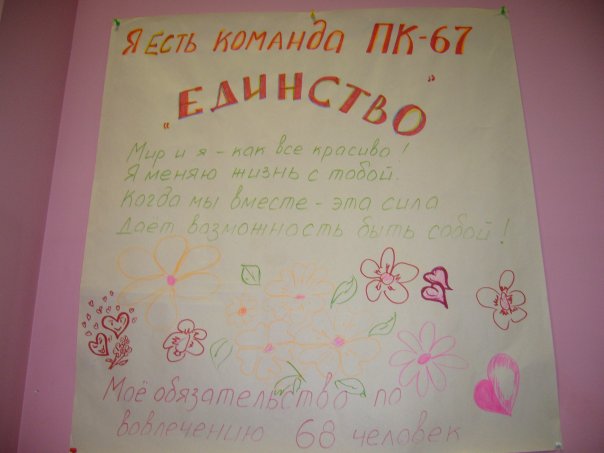 Я ЕСТЬ КОМАНДА ПК-67
„ЕДИНСТВО”
Мир и я - как все красиво!
Я меняю жизнь с тобой.
Когда мы вместе - эта сила
Даёт возможность быть собой!
Моё обязательство по
вовлечению 68 человек